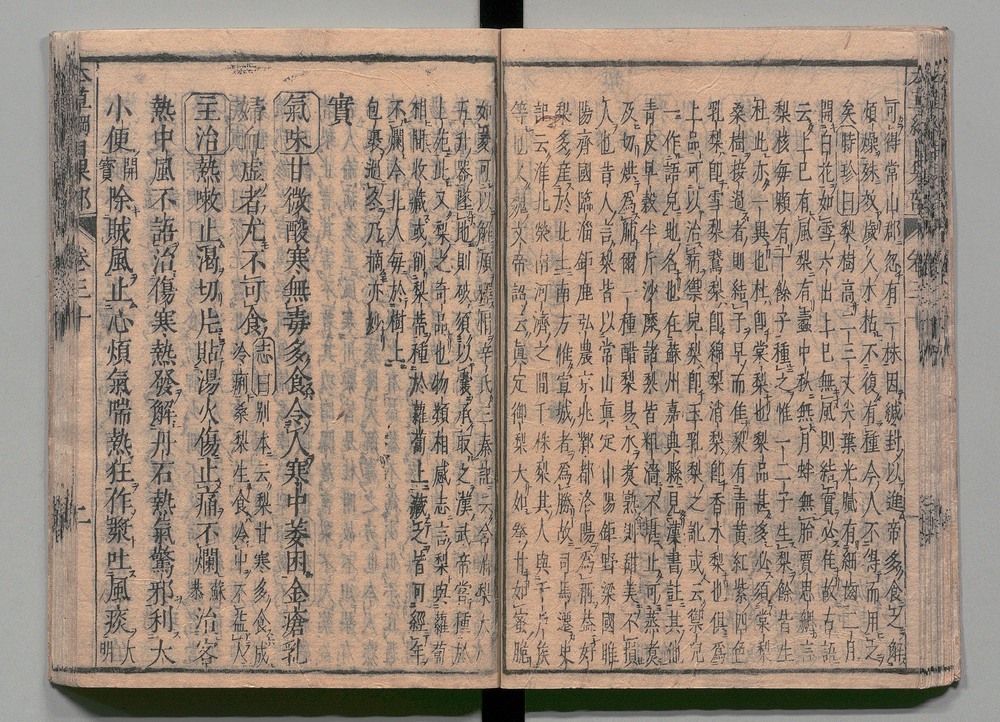 可得常山郡忽有一株因緘封以進帝多食之解
煩燥殊效歲久木枯不復有種今人不得而用之
矣時珍曰梨樹高二三丈尖葉光膩有細齒二月
開白花如雪六出上巳無風則結實必佳故古語
云上巳有風梨有蠹中秋無月蚌無胎賈思勰言
梨核每顆有十餘子種之惟一二子生梨餘皆生
杜此亦一異也杜即棠梨也梨品甚多必須棠梨
桑樹接過者則結子早而佳梨有青黃紅紫四色
乳梨即雪梨鵞梨即綿梨消梨即香水梨也俱爲
上品可以治病禦兒梨即玉乳梨之訛或云禦兒
一作語兒地名也在蘇州嘉興縣見漢書註其他
青皮早穀半斤沙糜諸梨皆粗澀不堪止可蒸煮
及切烘爲脯爾一種醋梨易水煮熟則甜美不損
人也昔人言梨皆以常山真定山陽鉅野梁國睢
陽齊國臨淄鉅鹿弘農京兆鄴都洛陽爲稱蓋好
梨多産於北土南方惟宣城者爲勝故司馬遷史
記云淮北滎南河濟之間千株梨其人與千戶侯
等也又魏文帝詔云真定御梨大如拳甘如蜜脆
如菱可以解煩釋悁辛氏三秦記云含消梨大如
五升器墜地則破須以囊承取之漢武帝嘗種於
上苑此又梨之奇品也物類相感志言梨與蘿蔔
相間收藏或削梨蒂種於蘿蔔上藏之皆可經年
不爛今北人每於樹上
包裹過冬乃摘亦妙
實
氣味甘微酸寒無毒多食令人寒中萎困金瘡乳
婦血虛者尤不可食志曰別本云梨甘寒多食成冷痢桑梨生食冷中不益人
主治熱嗽止渴切片貼湯火傷止痛不爛蘇恭治客
熱中風不語治傷寒熱發解丹石熱氣驚邪利大
小便開寶除賊風止心煩氣喘熱狂作漿吐風痰大明